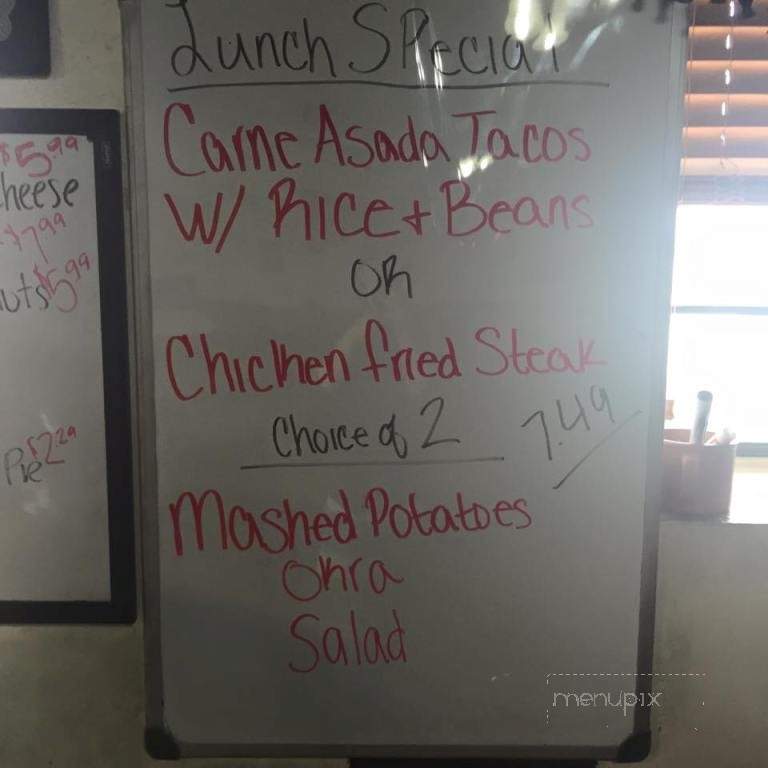 Lunch Special
Carne Asada Tacos
W/ Rice + Beans
OR
Chicken fried Steak
Choice of 2
7.49
Mashed Potatoes
Okra
Salad
$5.99
heese
$7.99
uts $5.99
Pie $2.29
menupix